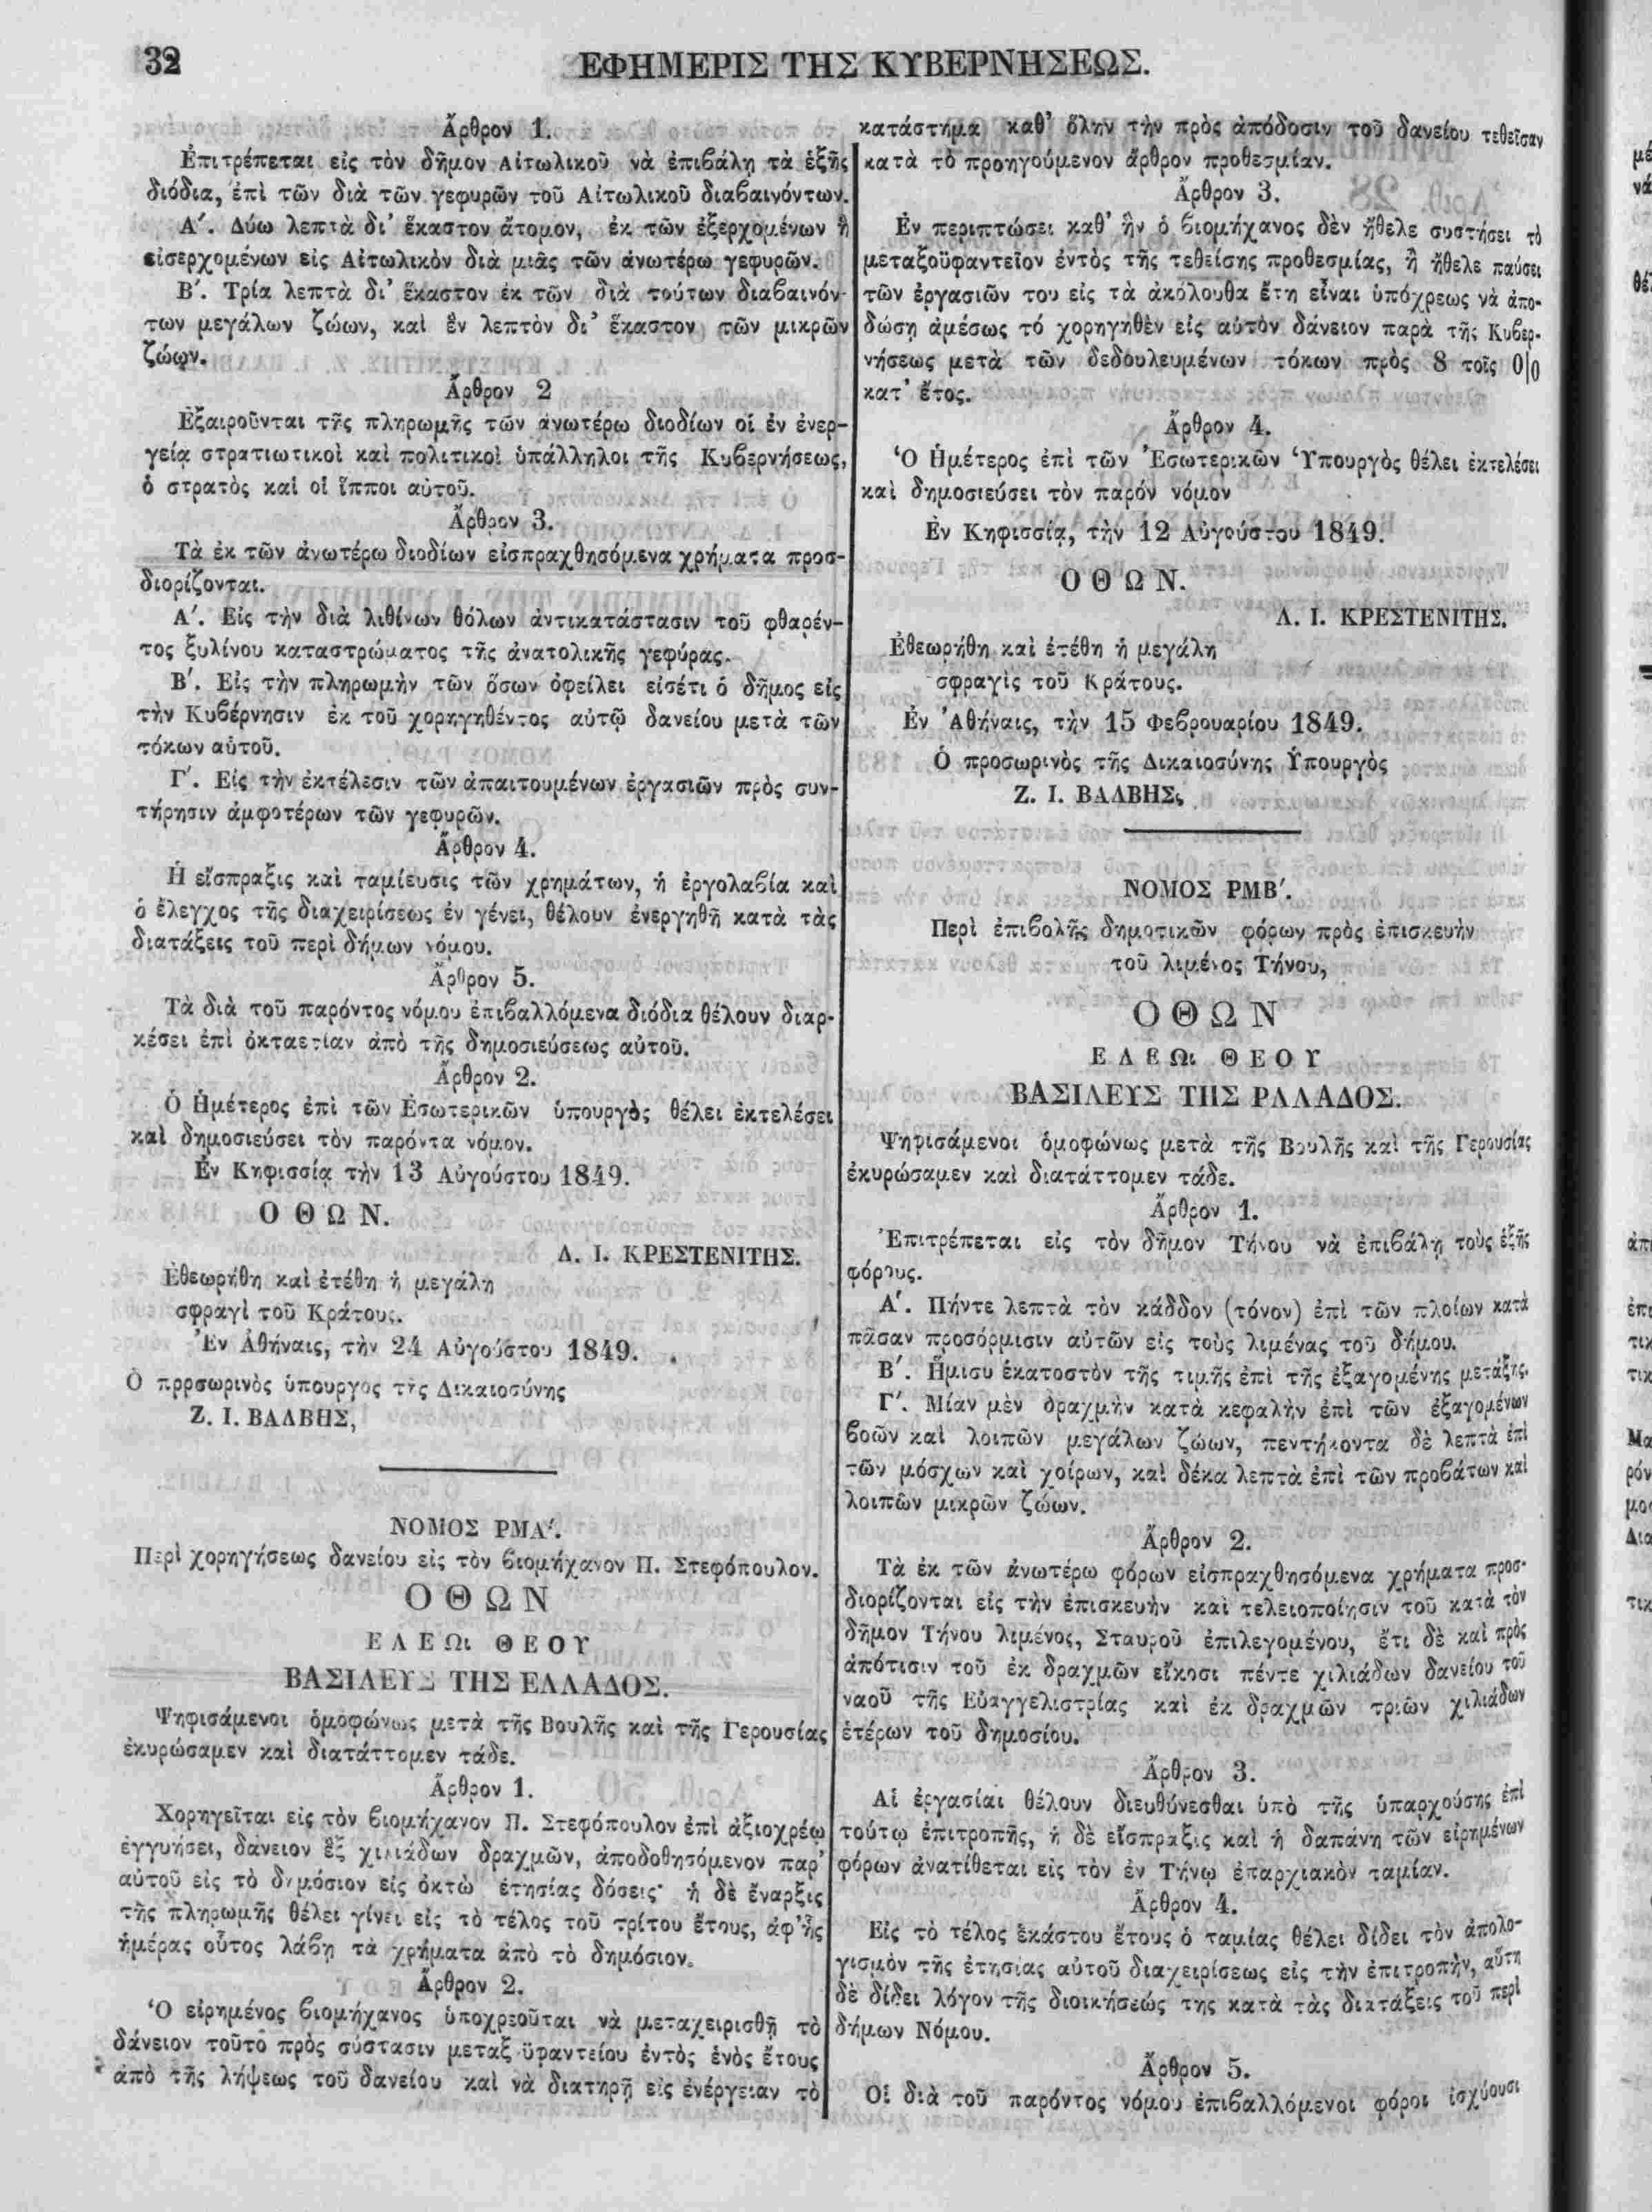 32
ΕΦΗΜΕΡΙΣ ΤΗΣ ΚΥΒΕΡΝΗΣΕΩΣ.
Ἄρθρον 1.
Ἐπιτρέπεται εἰς τὸν δῆμον Αἰτωλικοῦ νὰ ἐπιβάλῃ τὰ ἑξῆς
διόδια, ἐπὶ τῶν διὰ τῶν γεφυρῶν τοῦ Αἰτωλικοῦ διαβαινόντων.
Α΄. Δύω λεπτὰ δι' ἕκαστον ἄτομον, ἐκ τῶν ἐξερχομένων ἢ
εἰσερχομένων εἰς Αἰτωλικὸν διὰ μιᾶς τῶν ἀνωτέρω γεφυρῶν.
Β΄. Τρία λεπτὰ δι' ἕκαστον ἐκ τῶν διὰ τούτων διαβαινόν-
των μεγάλων ζώων, καὶ ἓν λεπτὸν δι' ἕκαστον τῶν μικρῶν
ζώων.
Ἄρθρον 2
Ἐξαιροῦνται τῆς πληρωμῆς τῶν ἀνωτέρω διοδίων οἱ ἐν ἐνερ-
γείᾳ στρατιωτικοὶ καὶ πολιτικοὶ ὑπάλληλοι τῆς Κυβερνήσεως,
ὁ στρατὸς καὶ οἱ ἵπποι αὐτοῦ.
Ἄρθρον 3.
Τὰ ἐκ τῶν ἀνωτέρω διοδίων εἰσπραχθησόμενα χρήματα προσ-
διορίζονται.
Α΄. Εἰς τὴν διὰ λιθίνων θόλων ἀντικατάστασιν τοῦ φθαρέν-
τος ξυλίνου καταστρώματος τῆς ἀνατολικῆς γεφύρας.
Β΄. Εἰς τὴν πληρωμὴν τῶν ὅσων ὀφείλει εἰσέτι ὁ δῆμος εἰς
τὴν Κυβέρνησιν ἐκ τοῦ χορηγηθέντος αὐτῷ δανείου μετὰ τῶν
τόκων αὐτοῦ.
Γ΄. Εἰς τὴν ἐκτέλεσιν τῶν ἀπαιτουμένων ἐργασιῶν πρὸς συν-
τήρησιν ἀμφοτέρων τῶν γεφυρῶν.
Ἄρθρον 4.
Ἡ εἴσπραξις καὶ ταμίευσις τῶν χρημάτων, ἡ ἐργολαβία καὶ
ὁ ἔλεγχος τῆς διαχειρίσεως ἐν γένει, θέλουν ἐνεργηθῆ κατὰ τὰς
διατάξεις τοῦ περὶ δήμων νόμου.
Ἄρθρον 5.
Τὰ διὰ τοῦ παρόντος νόμου ἐπιβαλλόμενα διόδια θέλουν διαρ-
κέσει ἐπὶ ὀκταετίαν ἀπὸ τῆς δημοσιεύσεως αὐτοῦ.
Ἄρθρον 2.
Ὁ Ἡμέτερος ἐπὶ τῶν Ἐσωτερικῶν ὑπουργὸς θέλει ἐκτελέσει
καὶ δημοσιεύσει τὸν παρόντα νόμον.
Ἐν Κηφισσίᾳ τὴν 13 Αὐγούστου 1849.
ΟΘΩΝ.
Λ. Ι. ΚΡΕΣΤΕΝΙΤΗΣ.
Ἐθεωρήθη καὶ ἐτέθη ἡ μεγάλη
σφραγὶ τοῦ Κράτους.
Ἐν Ἀθήναις, τὴν 24 Αὐγούστου 1849.
Ὁ πρρσωρινὸς ὑπουργος τῆς Δικαιοσύνης
Ζ. Ι. ΒΑΛΒΗΣ,
ΝΟΜΟΣ ΡΜΑ΄.
Περὶ χορηγήσεως δανείου εἰς τὸν βιομήχανον Π. Στεφόπουλον.
ΟΘΩΝ
ΕΛΕΩι ΘΕΟΥ
ΒΑΣΙΛΕΥΣ ΤΗΣ ΕΛΛΑΔΟΣ.
Ψηφισάμενοι ὁμοφώνως μετὰ τῆς Βουλῆς καὶ τῆς Γερουσίας
ἐκυρώσαμεν καὶ διατάττομεν τάδε.
Ἄρθρον 1.
Χορηγεῖται εἰς τὸν βιομήχανον Π. Στεφόπουλον ἐπὶ ἀξιοχρέῳ
ἐγγυήσει, δάνειον ἓξ χιλιάδων δραχμῶν, ἀποδοθησόμενον παρ'
αὐτοῦ εἰς τὸ δημόσιον εἰς ὀκτὼ ἐτησίας δόσεις· ἡ δὲ ἔναρξις
τῆς πληρωμῆς θέλει γίνει εἰς τὸ τέλος τοῦ τρίτου ἔτους, ἀφ' ἧς
ἡμέρας οὗτος λάβῃ τὰ χρήματα ἀπὸ τὸ δημόσιον.
Ἄρθρον 2.
Ὁ εἰρημένος βιομήχανος ὑποχρεοῦται νὰ μεταχειρισθῇ τὸ
δάνειον τοῦτο πρὸς σύστασιν μεταξ ϋφαντείου ἐντὸς ἑνὸς ἔτους
ἀπὸ τῆς λήψεως τοῦ δανείου καὶ νὰ διατηρῇ εἰς ἐνέργειαν τὸ
κατάστημα καθ' ὅλην τὴν πρὸς ἀπόδοσιν τοῦ δανείου τεθεῖσαν
κατὰ τὸ προηγούμενον ἄρθρον προθεσμίαν.
Ἄρθρον 3.
Ἐν περιπτώσει καθ' ἣν ὁ βιομήχανος δὲν ἤθελε συστήσει τὸ
μεταξοϋφαντεῖον ἐντὸς τῆς τεθείσης προθεσμίας, ἢ ἤθελε παύσει
τῶν ἐργασιῶν του εἰς τὰ ἀκόλουθα ἔτη εἶναι ὑπόχρεως νὰ ἀπο-
δώσῃ ἀμέσως τό χορηγηθὲν εἰς αὐτὸν δάνειον παρὰ τῆς Κυβερ-
νήσεως μετὰ τῶν δεδουλευμένων τόκων πρὸς 8 τοῖς 0|0
κατ' ἔτος.
Ἄρθρον 4.
Ὁ Ἡμέτερος ἐπὶ τῶν Ἐσωτερικῶν Ὑπουργὸς θέλει ἐκτελέσει
καὶ δημοσιεύσει τὸν παρόν νόμον
Ἐν Κηφισσίᾳ, τὴν 12 Αὐγούστου 1849.
ΟΘΩΝ.
Λ. Ι. ΚΡΕΣΤΕΝΙΤΗΣ.
Ἐθεωρήθη καὶ ἐτέθη ἡ μεγάλη
σφραγὶς τοῦ Κράτους.
Ἐν Ἀθήναις, τὴν 15 Φεβρουαρίου 1849.
Ὁ προσωρινὸς τῆς Δικαιοσύνης Ὑπουργὸς
Ζ. Ι. ΒΑΛΒΗΣ.
ΝΟΜΟΣ ΡΜΒ΄.
Περὶ ἐπιβολῆς δημοτικῶν φόρων πρὸς ἐπισκευὴν
τοῦ λιμένος Τήνου,
ΟΘΩΝ
ΕΛΕΩι ΘΕΟΥ
ΒΑΣΙΛΕΥΣ ΤΗΣ ΡΛΛΑΔΟΣ.
Ψηφισάμενοι ὁμοφώνως μετὰ τῆς Βουλῆς καὶ τῆς Γερουσίας
ἐκυρώσαμεν καὶ διατάττομεν τάδε.
Ἄρθρον 1.
Ἐπιτρέπεται εἰς τὸν δῆμον Τήνου νὰ ἐπιβάλῃ τοὺς ἑξῆς
φόρους.
Α΄. Πήντε λεπτὰ τὸν κάδδον (τόνον) ἐπὶ τῶν πλοίων κατὰ
πᾶσαν προσόρμισιν αὐτῶν εἰς τοὺς λιμένας τοῦ δήμου.
Β΄. Ἥμισυ ἑκατοστὸν τῆς τιμῆς ἐπὶ τῆς ἐξαγομένης μετάξης.
Γ΄. Μίαν μὲν δραχμὴν κατὰ κεφαλὴν ἐπὶ τῶν ἐξαγομένων
βοῶν καὶ λοιπῶν μεγάλων ζώων, πεντήκοντα δὲ λεπτὰ ἐπὶ
τῶν μόσχων καὶ χοίρων, καὶ δέκα λεπτὰ ἐπὶ τῶν προβάτων καὶ
λοιπῶν μικρῶν ζώων.
Ἄρθρον 2.
Τὰ ἐκ τῶν ἀνωτέρω φόρων εἰσπραχθησόμενα χρήματα προσ-
διορίζονται εἰς τὴν ἐπισκευὴν καὶ τελειοποίησιν τοῦ κατὰ τὸν
δῆμον Τήνου λιμένος, Σταυροῦ ἐπιλεγομένου, ἔτι δὲ καὶ πρὸς
ἀπότισιν τοῦ ἐκ δραχμῶν εἴκοσι πέντε χιλιάδων δανείου τοῦ
ναοῦ τῆς Εὐαγγελιστρίας καὶ ἐκ δραχμῶν τριῶν χιλιάδων
ἑτέρων τοῦ δημοσίου.
Ἄρθρον 3.
Αἱ ἐργασίαι θέλουν διευθύνεσθαι ὑπὸ τῆς ὑπαρχούσης ἐπὶ
τούτῳ ἐπιτροπῆς, ἡ δὲ εἴσπραξις καὶ ἡ δαπάνη τῶν εἰρημένων
φόρων ἀνατίθεται εἰς τὸν ἐν Τήνῳ ἐπαρχιακὸν ταμίαν.
Ἄρθρον 4.
Εἰς τὸ τέλος ἑκάστου ἔτους ὁ ταμίας θέλει δίδει τὸν ἀπολο-
γισμὸν τῆς ἐτησίας αὐτοῦ διαχειρίσεως εἰς τὴν ἐπιτροπὴν, αὕτη
δὲ δίδει λόγον τῆς διοικήσεώς της κατὰ τὰς διατάξεις τοῦ περὶ
δήμων Νόμου.
Ἄρθρον 5.
Οἱ διὰ τοῦ παρόντος νόμου ἐπιβαλλόμενοι φόροι ἰσχύουσι